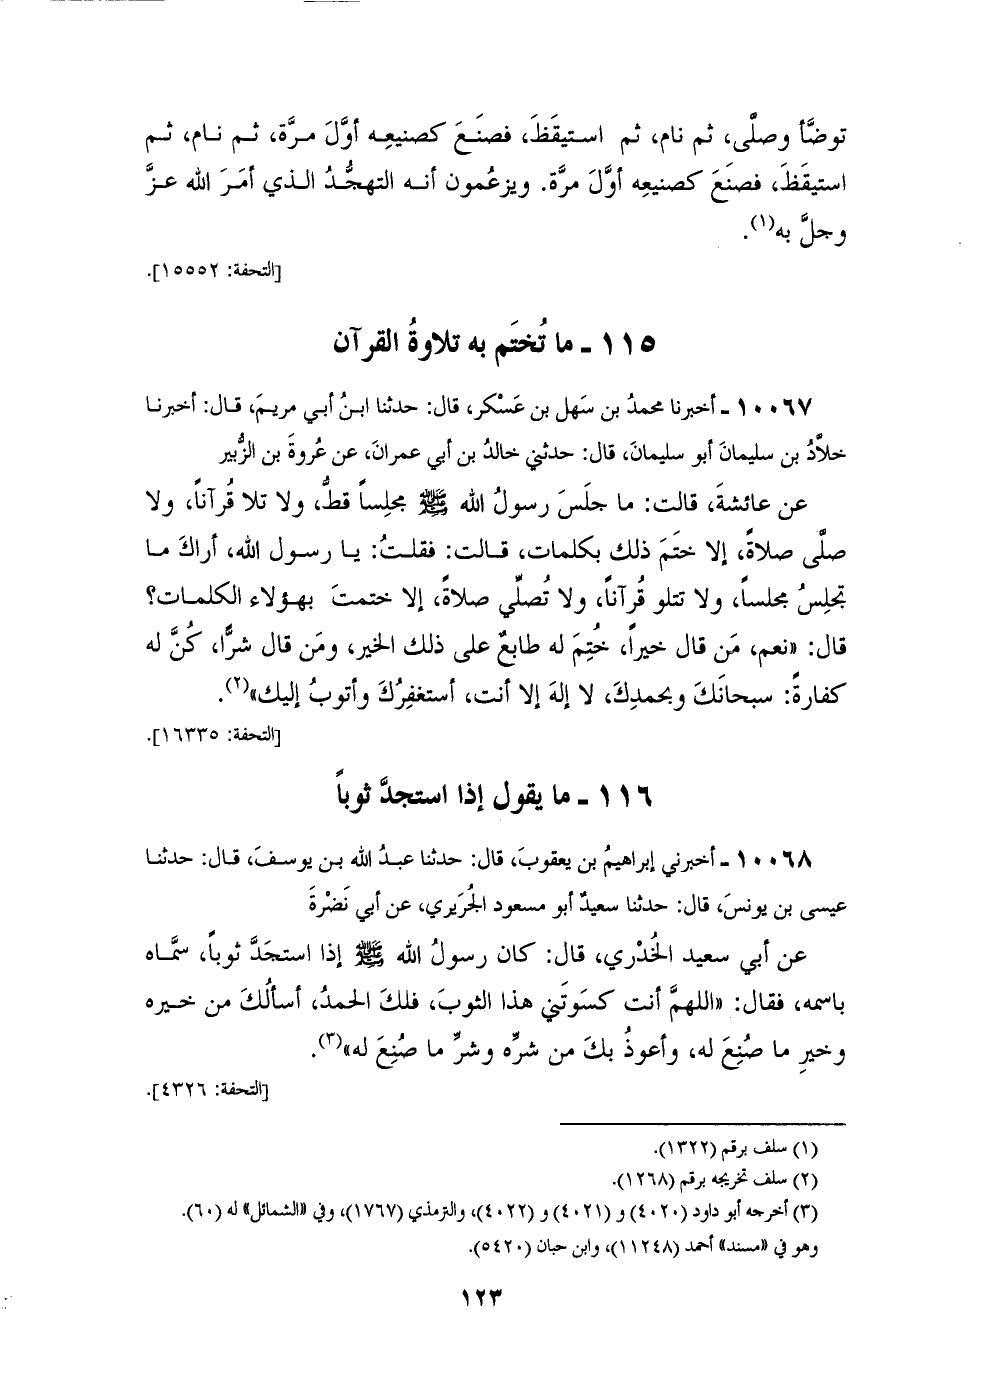 توضَّأ وصلَّى، ثم نام، ثم استيقَظَ، فصنَعَ كصنيعِه أوَّلَ مرَّة، ثم نام، ثم
استيقَظَ، فصنَعَ كصنيعِه أوَّلَ مرَّة. ويزعُمون أنه التهجُّدُ الذي أمَرَ الله عزَّ
وجلَّ به(١).
[التحفة: ١٥٥٥٢].
١١٥ ـ ما تُختَم به تلاوةُ القرآن
١٠٠٦٧ ـ أخبرنا محمدُ بن سَهل بن عَسْكر، قال: حدثنا ابنُ أبي مريمَ، قال: أخبرنا
خلاَّدُ بن سليمانَ أبو سليمانَ، قال: حدثني خالدُ بن أبي عمرانَ، عن عُروةَ بن الزُّبير
عن عائشةَ، قالت: ما جلَسَ رسولُ الله ﷺ مجلِساً قطُّ، ولا تلا قُرآناً، ولا
صلَّى صلاةً، إلا ختَمَ ذلك بكلمات، قالت: فقلتُ: يا رسول الله، أراكَ ما
تجلِسُ مجلساً، ولا تتلو قُرآناً، ولا تُصلِّي صلاةً، إلا ختمتَ بهؤلاء الكلمات؟
قال: «نعم، مَن قال خيراً، خُتِمَ له طابعٌ على ذلك الخير، ومَن قال شرًّا، كُنَّ له
كفارةً: سبحانَكَ وبحمدِكَ، لا إلهَ إلا أنت، أستغفِرُكَ وأتوبُ إليك»(٢).
[التحفة: ١٦٣٣٥].
١١٦ ـ ما يقول إذا استجدَّ ثوباً
١٠٠٦٨ ـ أخبرني إبراهيمُ بن يعقوبَ، قال: حدثنا عبدُ الله بن يوسفَ، قال: حدثنا
عيسى بن يونسَ، قال: حدثنا سعيدٌ أبو مسعود الجُرَيري، عن أبي نَضْرةَ
عن أبي سعيد الخُدْري، قال: كان رسولُ الله ﷺ إذا استجَدَّ ثوباً، سمَّاه
باسمه، فقال: «اللهمَّ أنت كسَوتَني هذا الثوبَ، فلكَ الحمدُ، أسألُكَ من خيره
وخيرِ ما صُنِعَ له، وأعوذُ بكَ من شرِّه وشرِّ ما صُنِعَ له»(٣).
[التحفة: ٤٣٢٦].
(١) سلف برقم (١٣٢٢).
(٢) سلف تخريجه برقم (١٢٦٨).
(٣) أخرجه أبو داود (٤٠٢٠) و (٤٠٢١) و (٤٠٢٢)، والترمذي (١٧٦٧)، وفي «الشمائل» له (٦٠).
وهو في «مسند» أحمد (١١٢٤٨)، وابن حبان (٥٤٢٠).
١٢٣